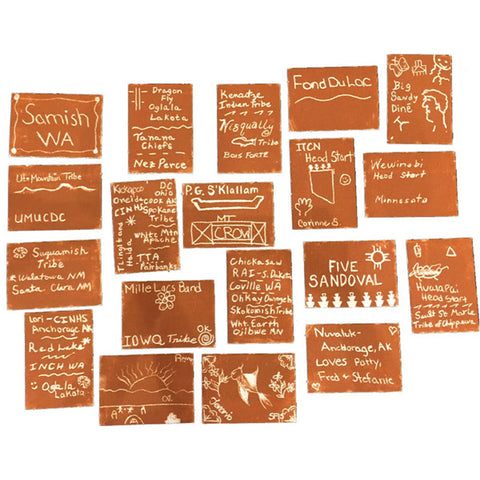 Samish
WA
Dragon
Fly
Oglala
Lakota
Tanana
Chiefs
Nez Perce
Kenaitze
Indian Tribe
Nisqually
Tribe
Bois Forte
Fond Du Lac
Big
Sandy
Diné
Ute Mountain Tribe
UMUCDC
Kickapoo
Oneida
CINHS
Tlingit and
Haida
DC
Ohio
COOK AK
Spokane
Tribe
White Mtn
Apache
TTA
Fairbanks
P.G. S'Klallam
MT
CROW
ITCN
Head Start
Corinne S.
Wewinabi
Head Start
Minnesota
Suquamish
Tribe
Walatowa NM
Santa Clara NM
Mille Lacs Band
IOWA Tribe
OK
Chickasaw
RAI - S. Dakota
Colville WA
Ohkay Owingeh
Skokomish Tribe
Wht. Earth
Ojibwe MN
FIVE
SANDOVAL
Hualapai
Head Start
Sault St Marie
Tribe of Chippewa
Lori - CINHS
Anchorage AK
Red Lake
INCH WA
Oglala
Lakota
Toronto
Nuvaluk-
Anchorage, AK
Loves Patty,
Fred & Stefanie